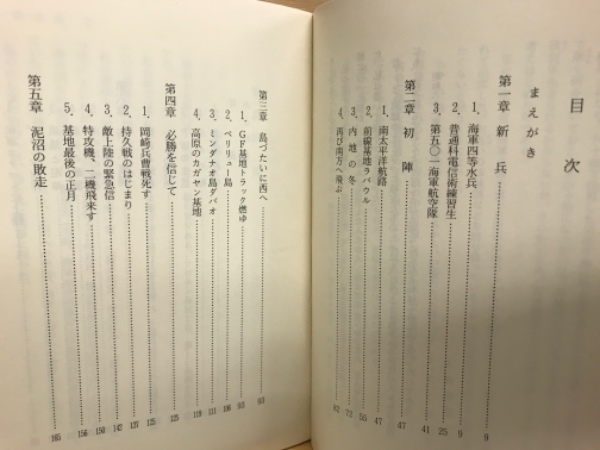 目次
まえがき
第一章 新兵 9
1. 海軍四等水兵 9
2. 普通科電信術練習生 25
3. 第五〇一海軍航空隊 41
第二章 初陣 47
1. 南太平洋航路 47
2. 前線基地ラバウル 55
3. 内地の冬 72
4. 再び南方へ飛ぶ 82
第三章 島づたいに西へ 93
1. GF基地トラック燃ゆ 93
2. ペリリュー島 106
3. ミンダナオ島ダバオ 111
4. 高原のカガヤン基地 119
第四章 必勝を信じて 125
1. 岡崎兵曹戦死す 125
2. 持久戦のはじまり 137
3. 敵上陸の緊急信 142
4. 特攻機、二機飛来す 150
5. 基地最後の正月 156
第五章 泥沼の敗走 165